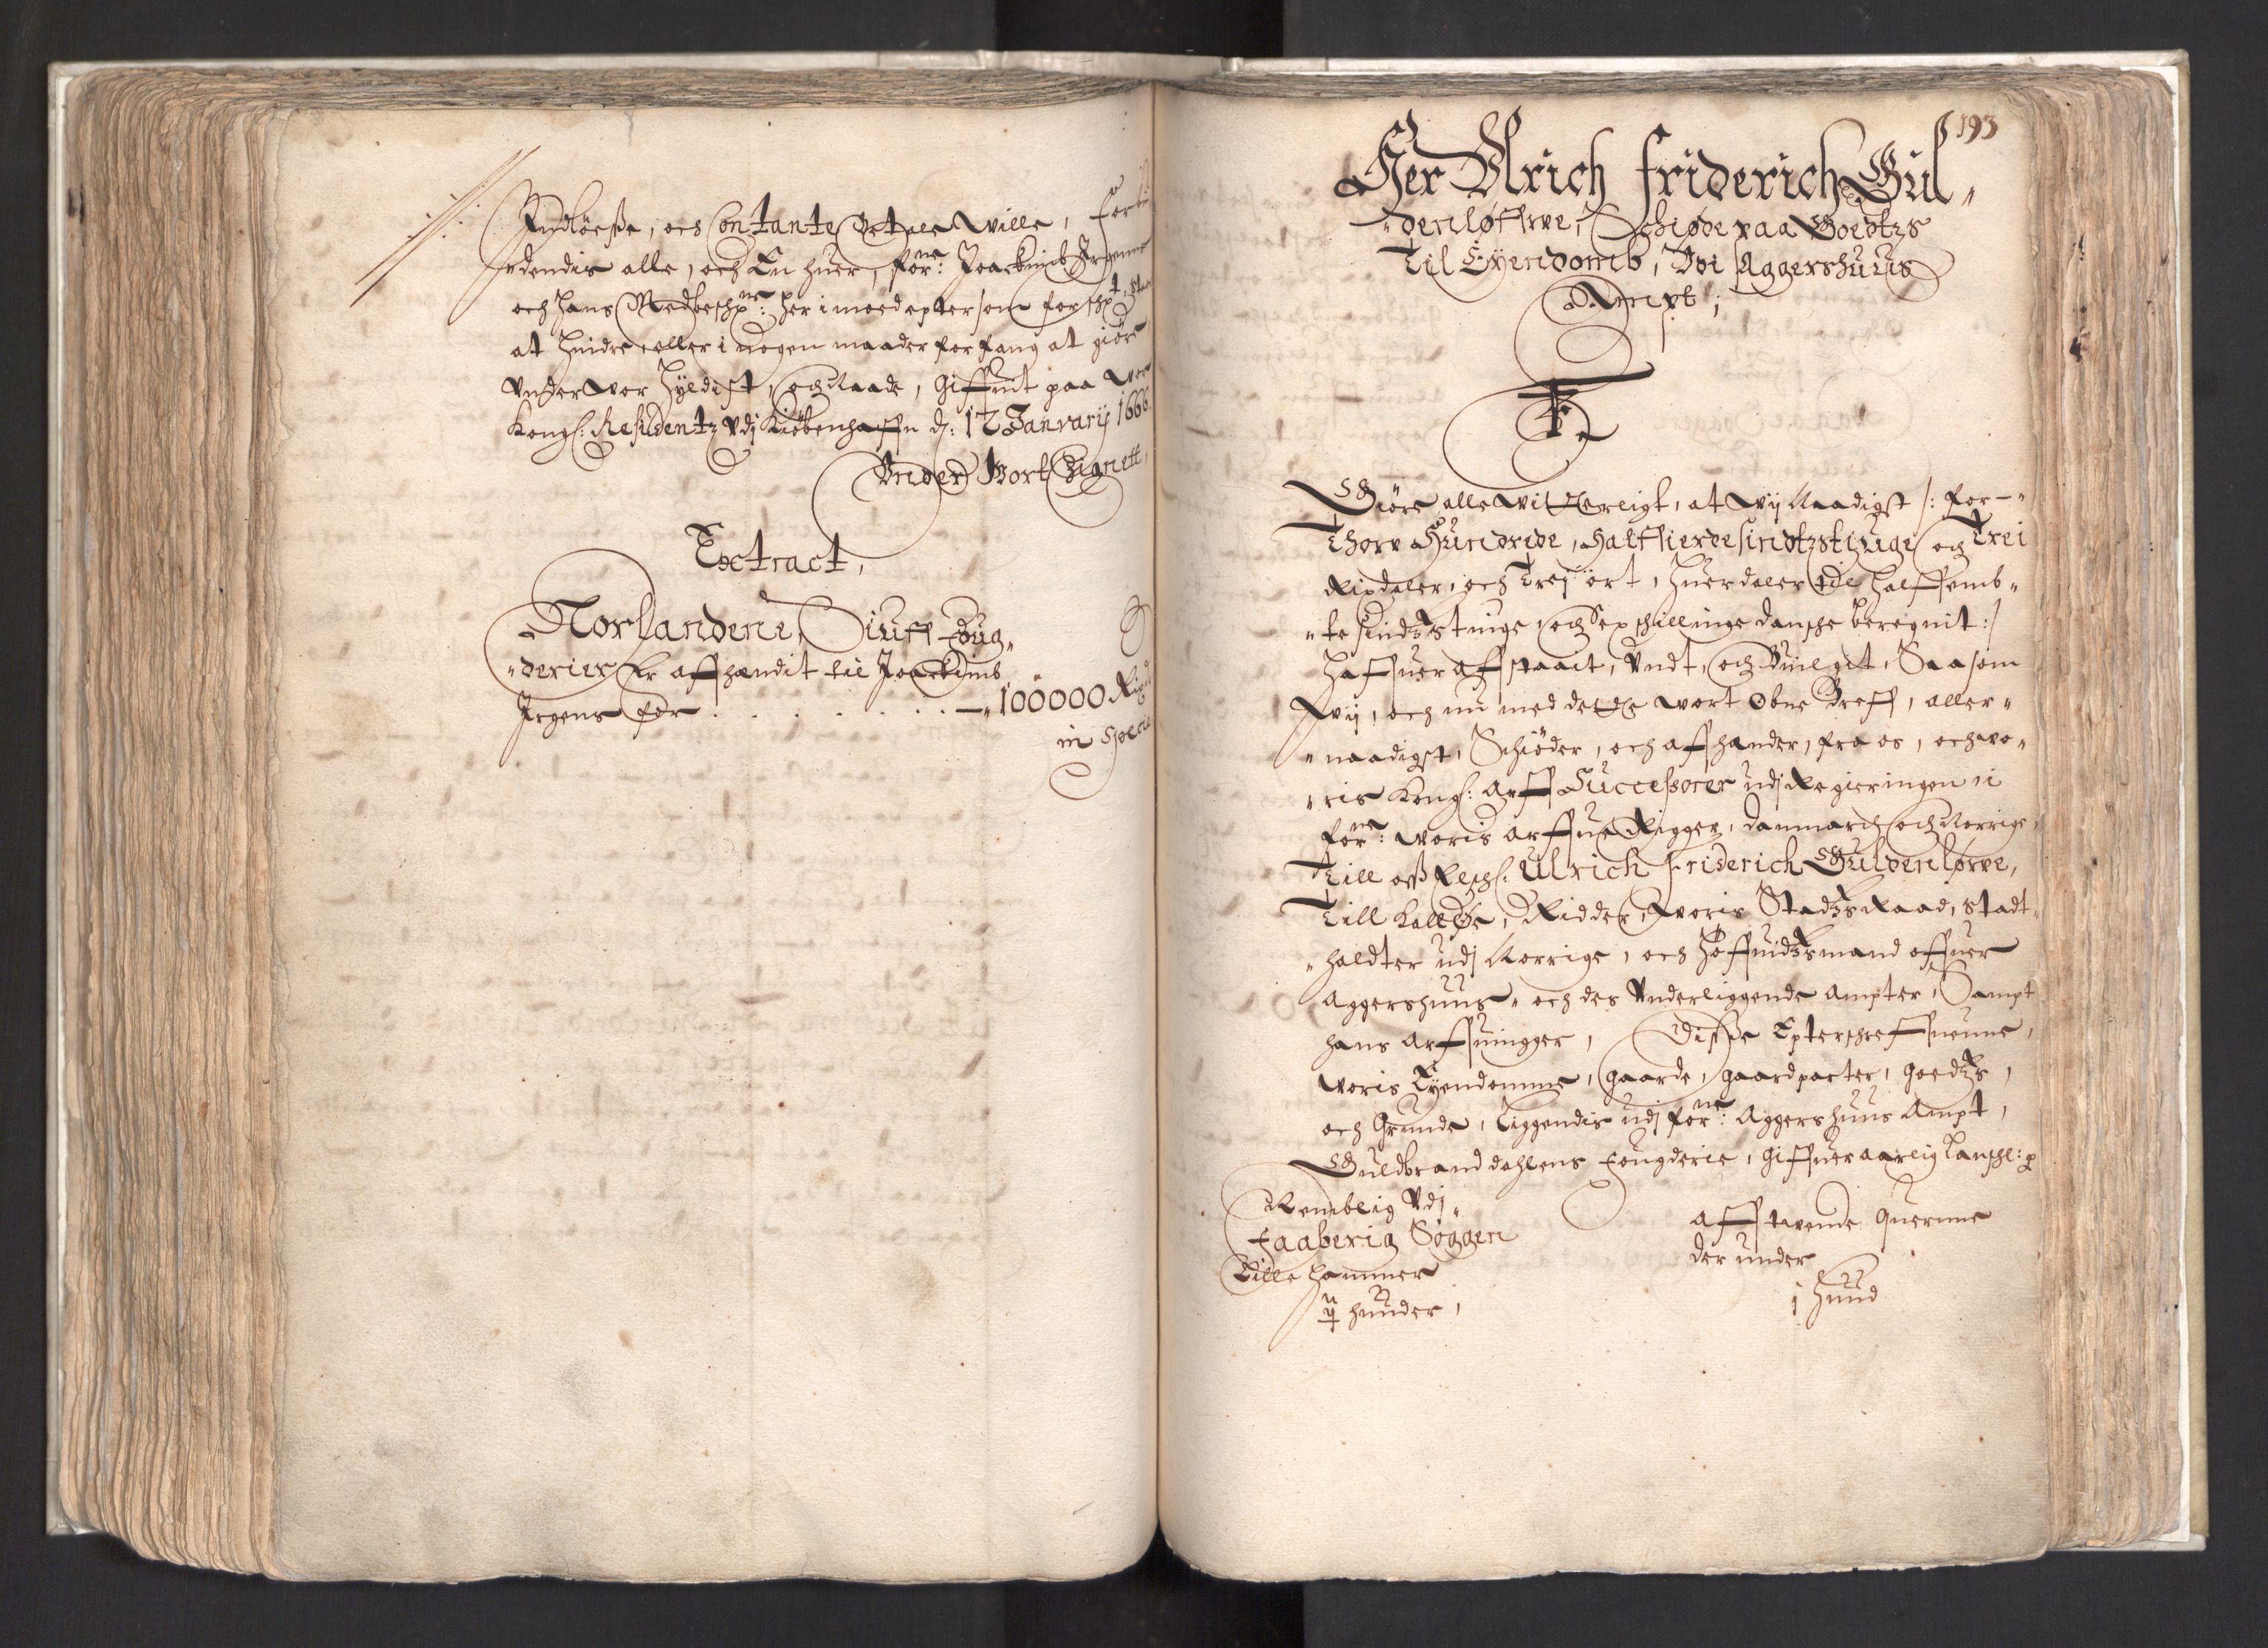 Indløesse, och Contante Betale wille, Forbi
"dendis alle, och En huer, forne: Joackimb Irgenns
och hans Medbeschrne: her imoed epter som forscht: staar
at hindre eller i nogen maader forfang at giöre
Vnder wor Hyldist, och Naade, Giffuit paa wor
Kongl: Residentz Vdj Kiöbenhaffn d: 12 Janvarij 1666.
Vnder Wort Signett,
Extract,
Norlandene, Siuff Foug„
"derier Er affhændit til Joackimb
Irgens for . . . . . . . — „100000 Rixd
in Specie
193
Her Vlrich Friderich Gül„
"denløffwe, Schiøde paa Goedtzs
Til Eÿendomb, Vdi Aggershuus
Ampt;
F.
Giöre alle witterligt, at wij Naadigst /: for—"
Thorv Hundrede, Halffierdesindtzstiuge och Trei
Rixdaler, och Trej ört, huer daler til halffemb„
"te sindtzstiuge och Sex schillinge dansche beregnit :/
Haffuer affstaait, Vndt, och Beuilgit, Saasom
Wij, och nu med dette wort Obne Breff, aller„
"naadigst, Schiöder, och affhænder, fra os, och wo„
"ris Kongl: Arff Successorer udj Regieringen i
forne: woris Arffue Rigger, Danmarch och Norrige,
Till oss Elschl: Ulrich Friderich Guldenløwe,
Till Kalløe, Ridder, Woris Stadtzs Raad, Stadt„
"haldter udj Norrige, och Høffuidtzsmand offuer
Aggershuus„ och des Vnderliggende Ampter, Sampt
hans Arffuingger, Disse Epterschreffneune,
woris Eÿendomme, Gaarde, Gaardparter, Goedtzs,
och Grunde, Liggendis udj forne: Aggershuus Ampt,
Guldbrand dahlens Fougderie, Giffuer aarlig Landschl: p
Remblig Vdj„
Faaberig Soggen
Lille Hammer
ij huuder,
Aff twende Quernne
der under
j huud